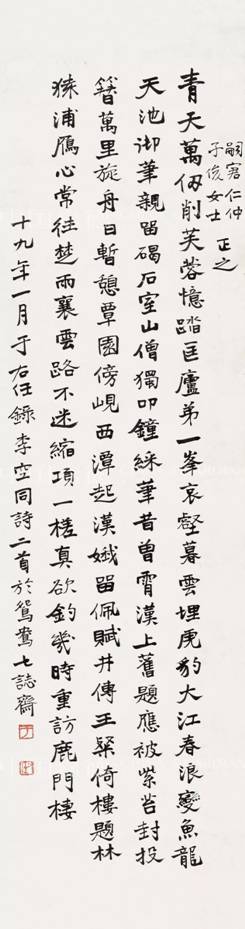 嗣宏仁仲
子俊女士 正之
青天萬仞削芙蓉憶踏匡廬第一峯哀壑暮雲埋虎豹大江春浪變魚龍
天池御筆親留碣石室山僧獨叩鐘綵筆昔曾霄漢上舊題應被紫苔封投
簪萬里旋舟日暫憩章園傍峴西潭起漢娥留佩賦井傳王粲倚樓題林
猿浦鴈心常往楚雨襄雲路不迷縮項一槎真欲釣幾時重訪鹿門棲
十九年一月于右任錄李空同詩二首於鴛鴦七誌齋